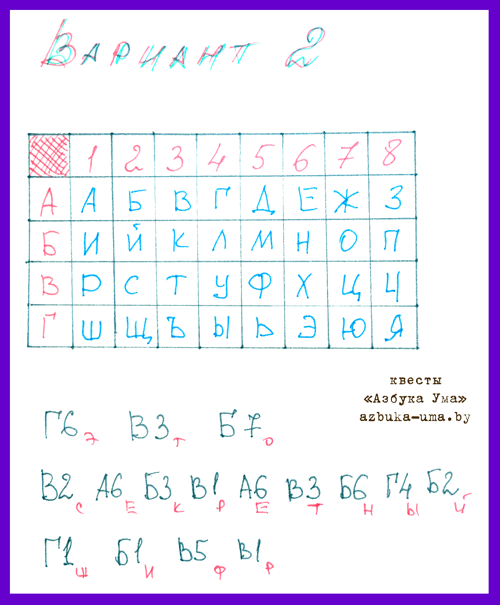 Вариант 2
1 2 3 4 5 6 7 8
А А Б В Г Д Е Ж З
Б И Й К Л М Н О П
В Р С Т У Ф Х Ц Ч
Г Ш Щ Ъ Ы Ь Э Ю Я
квесты
«Азбука Ума»
azbuka-uma.by
Г6 э В3 т Б7 о
В2 с А6 е Б3 к В1 р А6 е В3 т Б6 н Г4 ы Б2 й
Г1 ш Б1 и В5 ф В1 р